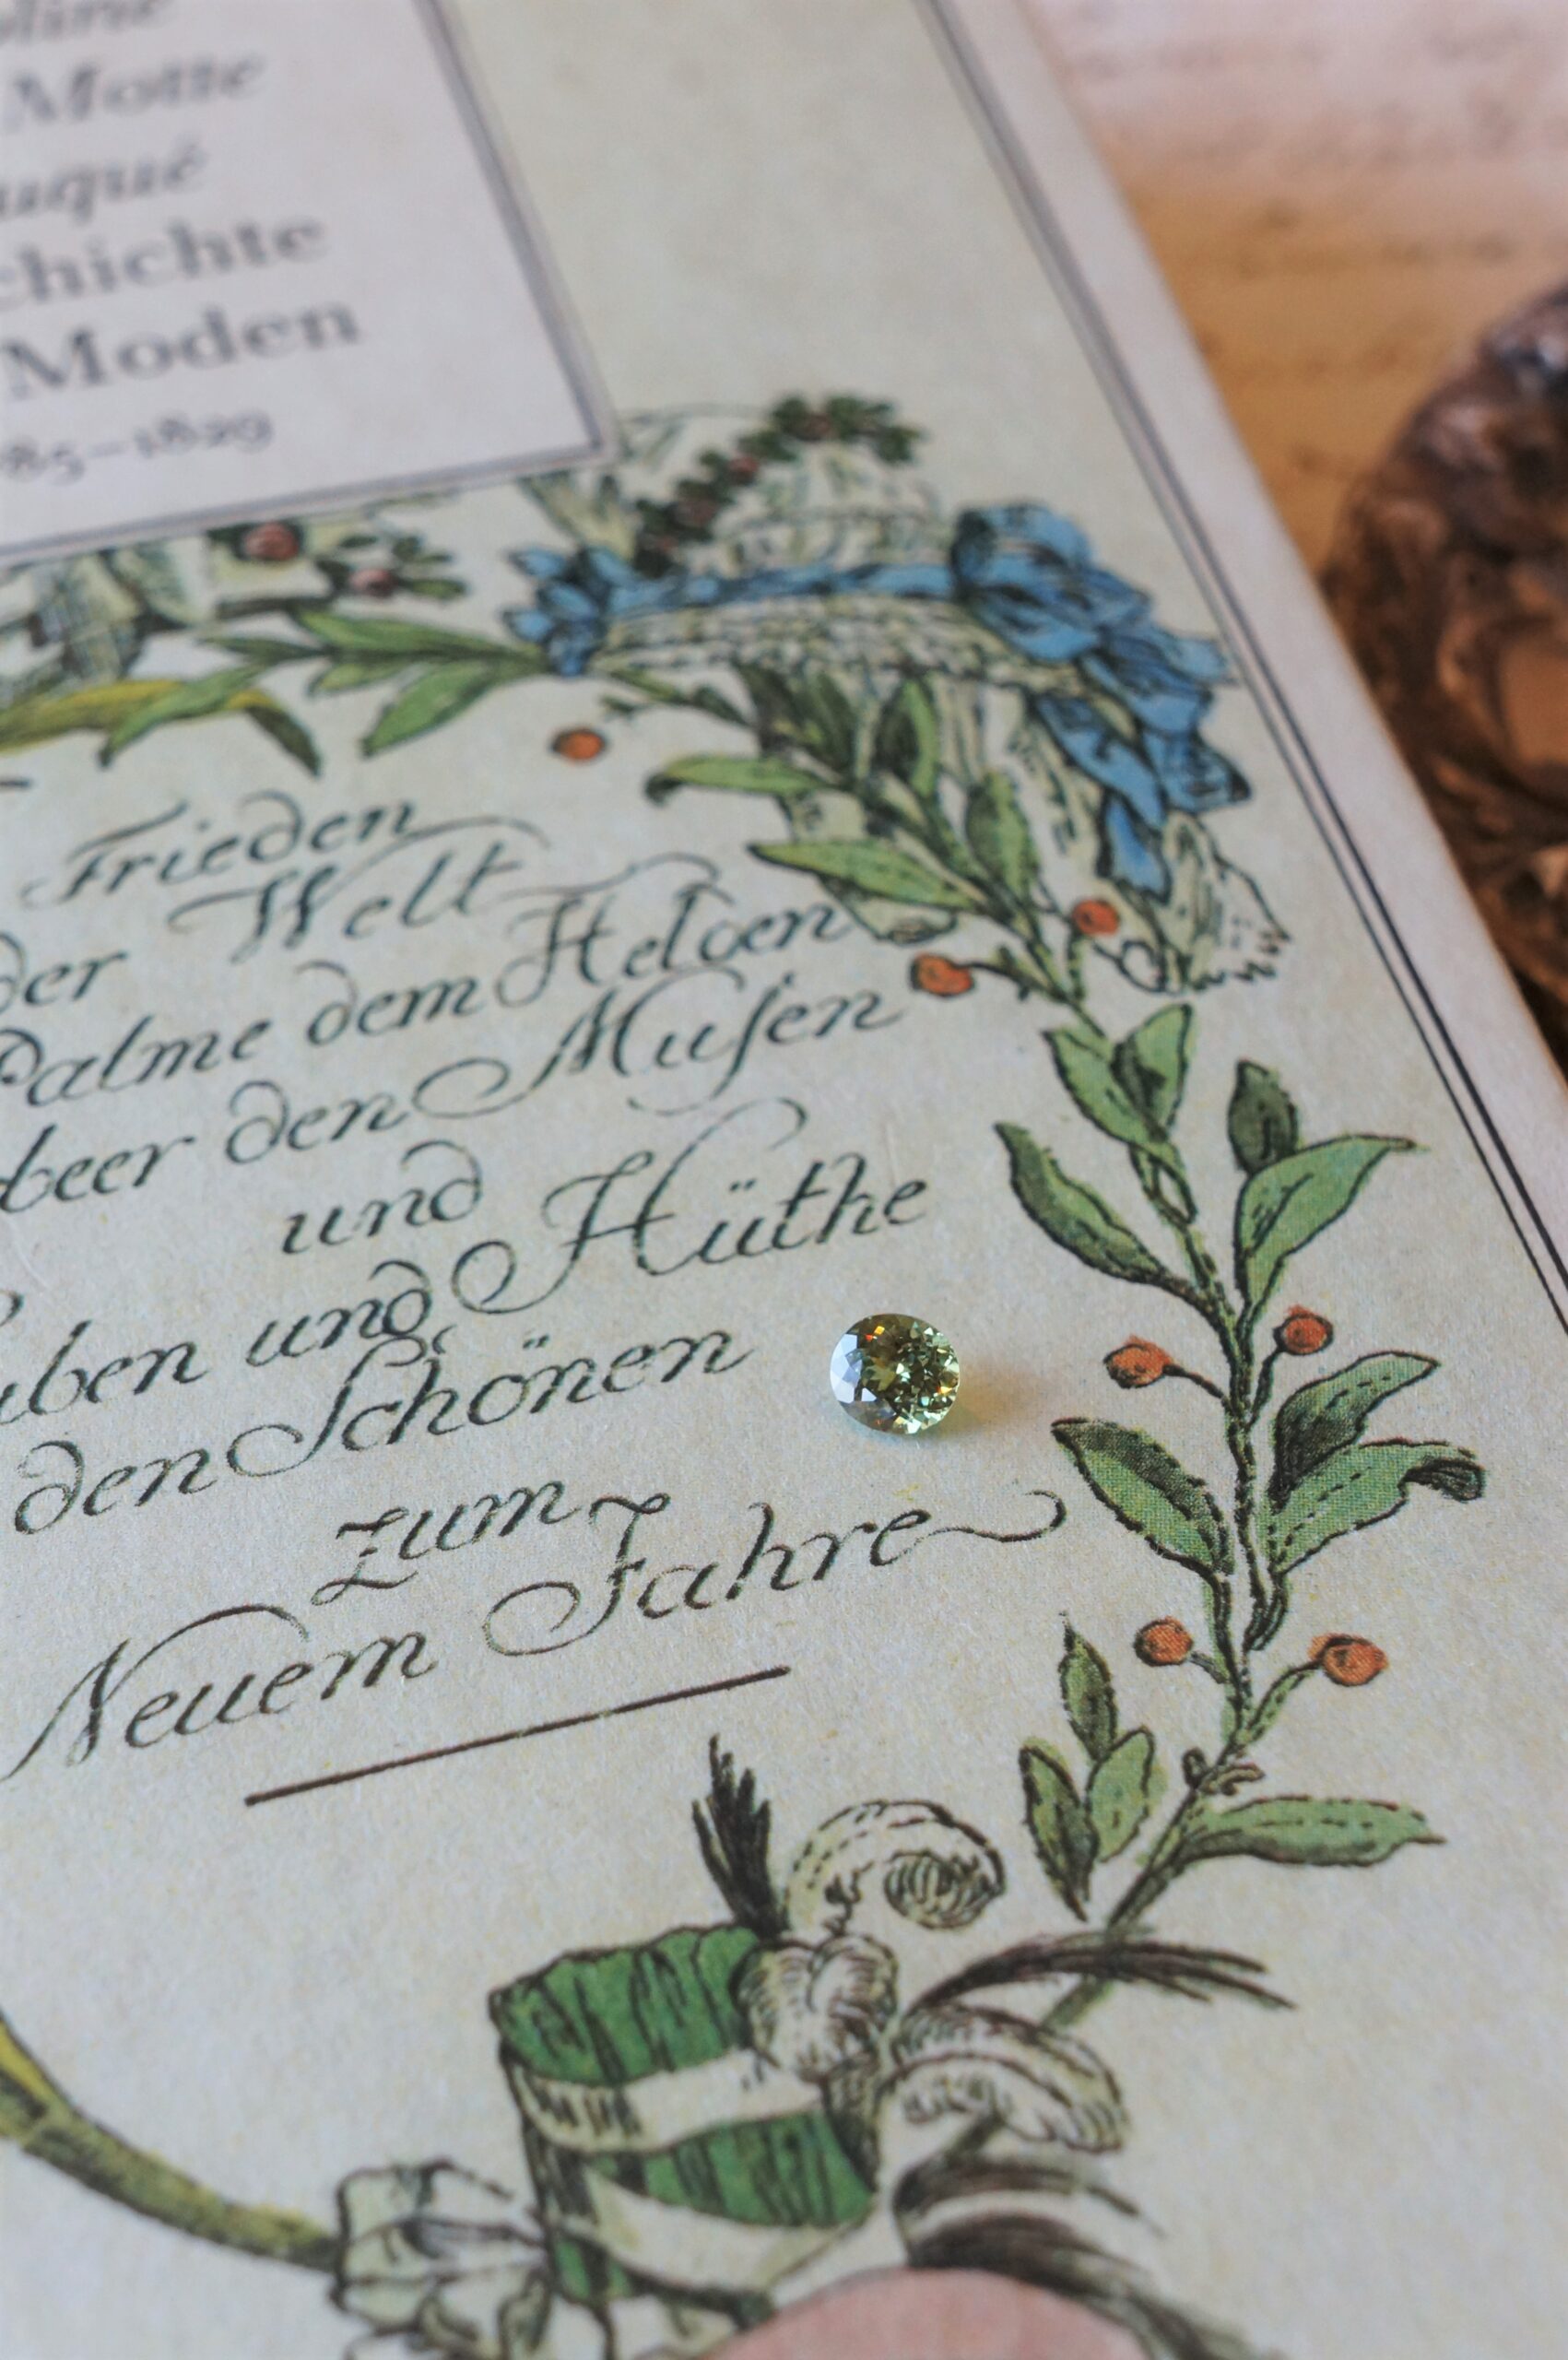 Motte
uqué
chichte
Moden
85–1829
Frieden
der Welt
Palme dem Helden
beer den Musen
und
uben und Hüthe
den Schönen
zum
Neuem Jahre